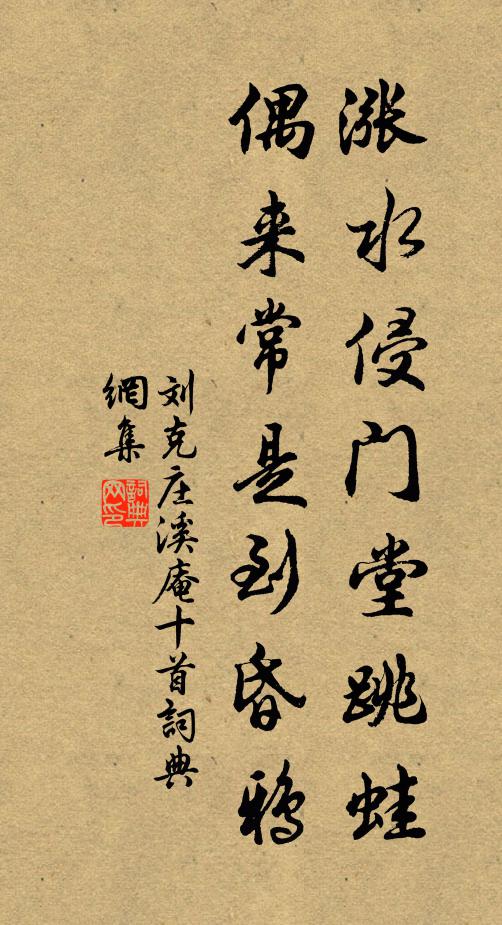 漲水侵門堂跳蛙
偶来常是到昏鴉
刘克庄溪庵十首詞典
網集
詞典網印